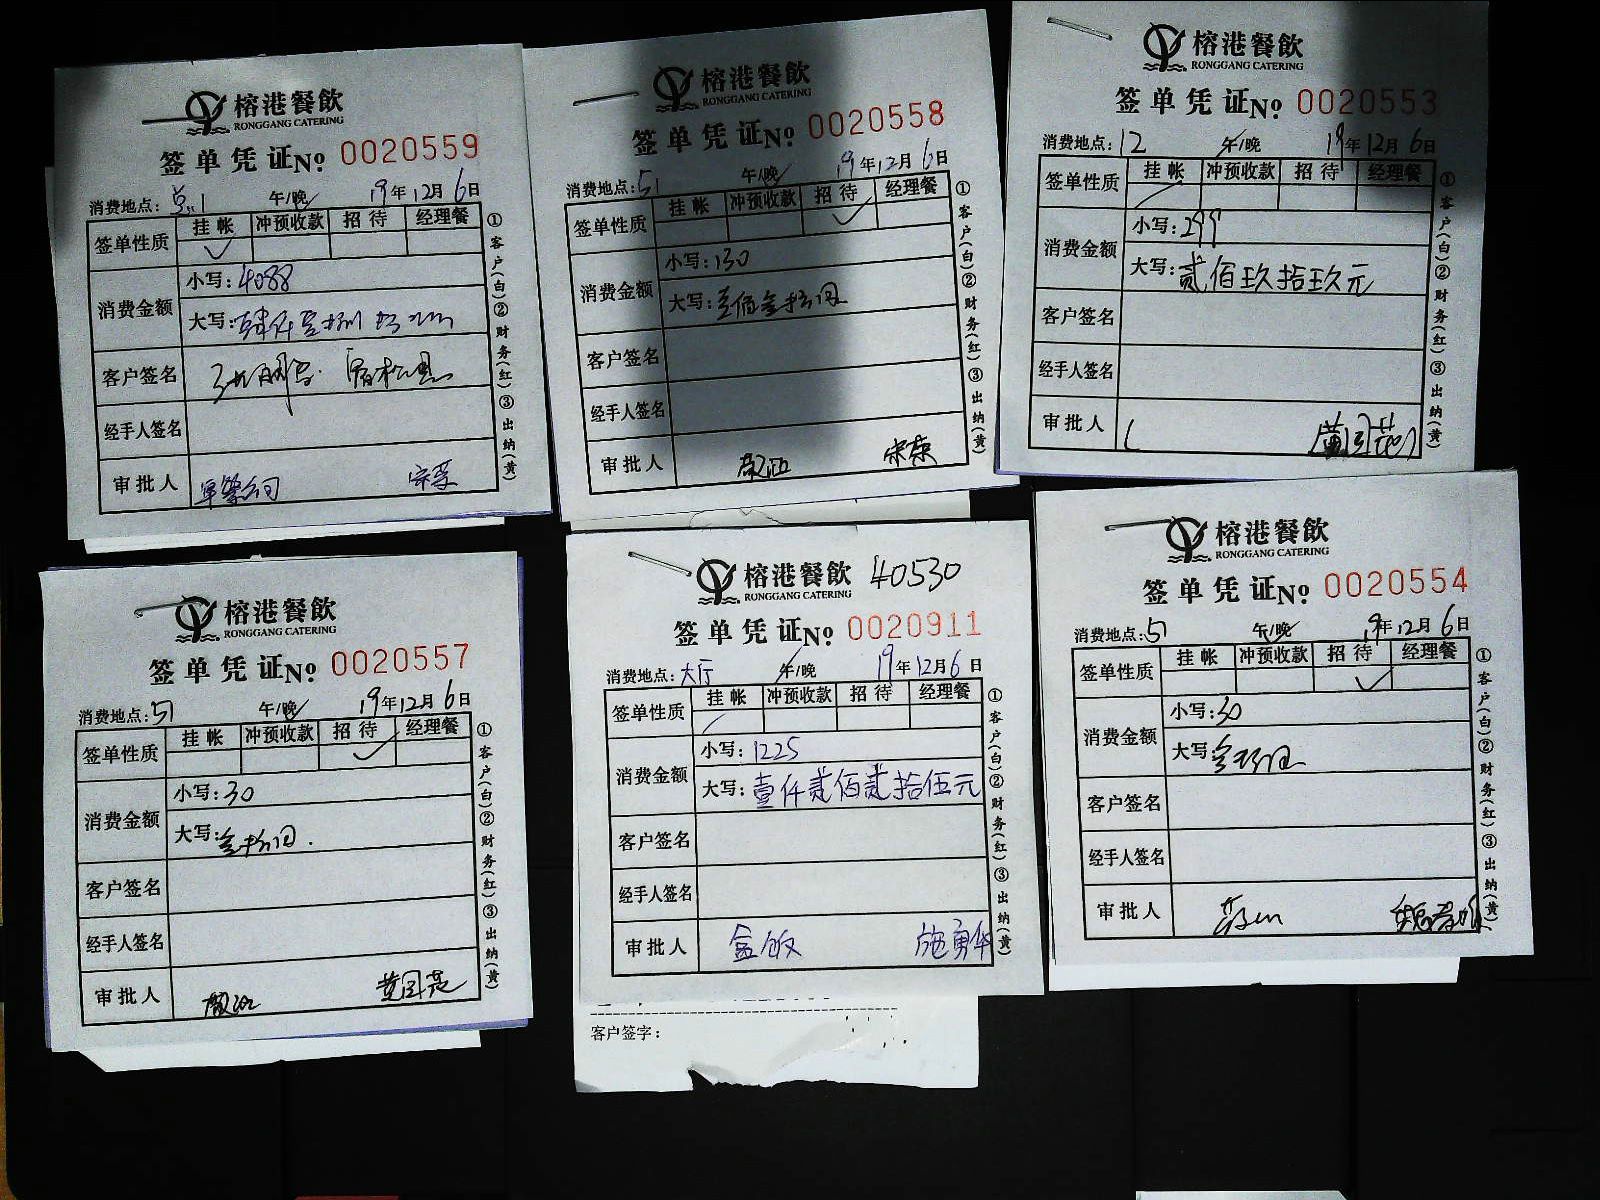 榕港餐飲
RONGGANG CATERING
签单凭证 No 0020559
消费地点: 午/晚 19年12月6日
签单性质 挂帐 冲预收款 招待 经理餐
消费金额 小写:4088
大写:
客户签名
经手人签名
审批人
①客户(白)②财务(红)③出纳(黄)
榕港餐飲
RONGGANG CATERING
签单凭证 No 0020558
消费地点:51 午/晚 19年12月6日
签单性质 挂帐 冲预收款 招待 经理餐
消费金额 小写:130
大写:壹佰叁拾圆
客户签名
经手人签名
审批人 宋荣
①客户(白)②财务(红)③出纳(黄)
榕港餐飲
RONGGANG CATERING
签单凭证 No 0020553
消费地点:12 午/晚 19年12月6日
签单性质 挂帐 冲预收款 招待 经理餐
消费金额 小写:299
大写:贰佰玖拾玖元
客户签名
经手人签名
审批人
①客户(白)②财务(红)③出纳(黄)
榕港餐飲
RONGGANG CATERING
签单凭证 No 0020557
消费地点:51 午/晚 19年12月6日
签单性质 挂帐 冲预收款 招待 经理餐
消费金额 小写:30
大写:叁拾圆.
客户签名
经手人签名
审批人
①客户(白)②财务(红)③出纳(黄)
榕港餐飲 40530
RONGGANG CATERING
签单凭证 No 0020911
消费地点:大厅 午/晚 19年12月6日
签单性质 挂帐 冲预收款 招待 经理餐
消费金额 小写:1225
大写:壹仟贰佰贰拾伍元
客户签名
经手人签名
审批人 盒饭 施勇华
①客户(白)②财务(红)③出纳(黄)
客户签字:
榕港餐飲
RONGGANG CATERING
签单凭证 No 0020554
消费地点:51 午/晚 19年12月6日
签单性质 挂帐 冲预收款 招待 经理餐
消费金额 小写:30
大写:叁拾圆
客户签名
经手人签名
审批人
①客户(白)②财务(红)③出纳(黄)